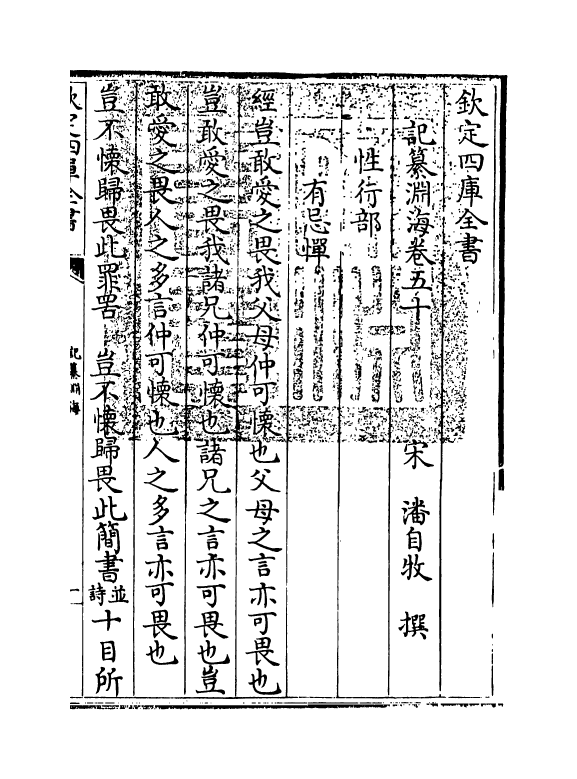 欽定四庫全書
記纂淵海卷五十
宋 潘自牧 撰
性行部
有忌憚
經豈敢愛之畏我父母仲可懷也父母之言亦可畏也
豈敢愛之畏我諸兄仲可懷也諸兄之言亦可畏也豈
敢愛之畏人之多言仲可懷也人之多言亦可畏也
豈不懷歸畏此罪罟 豈不懷歸畏此簡書並詩十目所
欽定四庫全書
記纂淵海
一